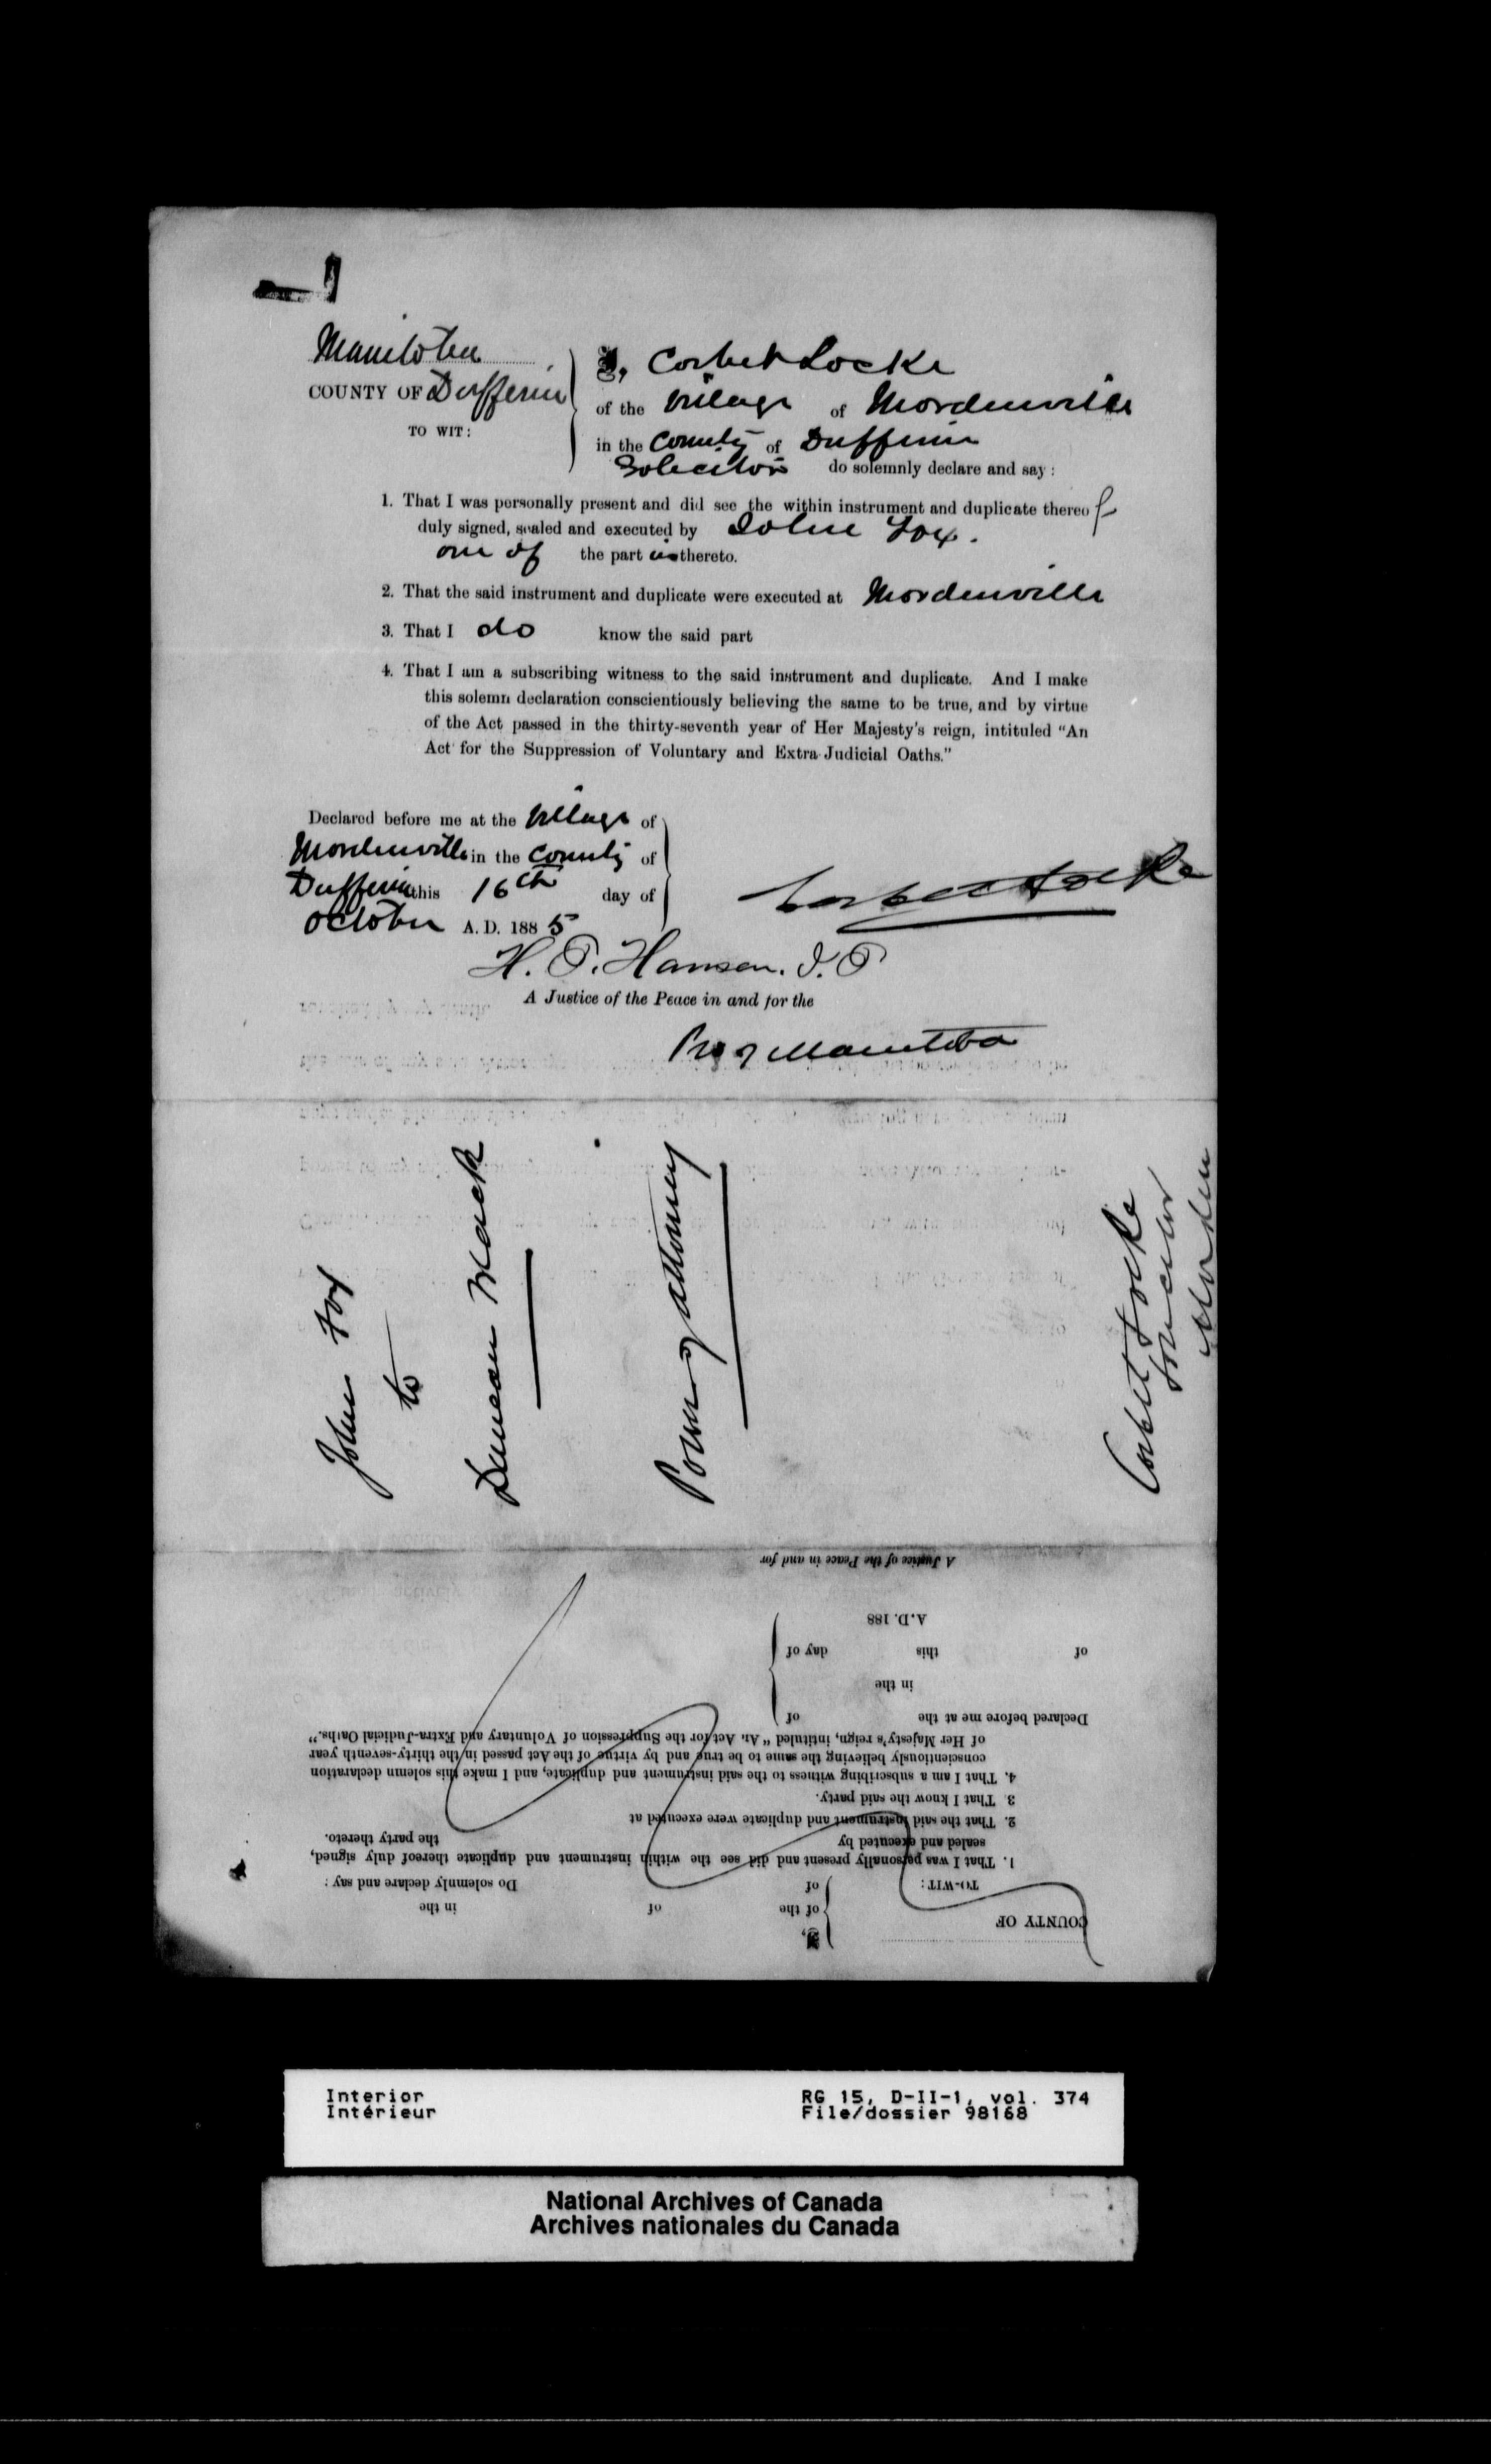 Manitoba
COUNTY OF Dufferin
TO WIT:
I, Corbet Locke
of the Village of Mordenville
in the County of Dufferin
Solicitor do solemnly declare and say:
1. That I was personally present and did see the within instrument and duplicate thereof
duly signed, sealed and executed by John Fox.
one of the parties thereto.
2. That the said instrument and duplicate were executed at Mordenville
3. That I do know the said part
4. That I am a subscribing witness to the said instrument and duplicate. And I make
this solemn declaration conscientiously believing the same to be true, and by virtue
of the Act passed in the thirty-seventh year of Her Majesty's reign, intituled "An
Act for the Suppression of Voluntary and Extra-Judicial Oaths."
Declared before me at the Village of
Mordenville in the County of
Dufferin this 16th day of
October A. D. 1885
Corbet Locke
H. P. Hansen. J. P
A Justice of the Peace in and for the
Pro of Manitoba
John Fox
to
Duncan Mack
Power of Attorney
Corbet Locke
Solicitor
Morden
COUNTY OF
TO-WIT:
I,
of the of in the
of Do solemnly declare and say:
1. That I was personally present and did see the within instrument and duplicate thereof duly signed,
sealed and executed by the party thereto.
2. That the said instrument and duplicate were executed at
3. That I know the said party.
4. That I am a subscribing witness to the said instrument and duplicate, and I make this solemn declaration
conscientiously believing the same to be true and by virtue of the Act passed in the thirty-seventh year
of Her Majesty's reign, intituled "An Act for the Suppression of Voluntary and Extra-Judicial Oaths."
Declared before me at the of
in the
of this day of
A.D. 188
A Justice of the Peace in and for
Interior
Intérieur
RG 15, D-II-1, vol. 374
File/dossier 98168
National Archives of Canada
Archives nationales du Canada